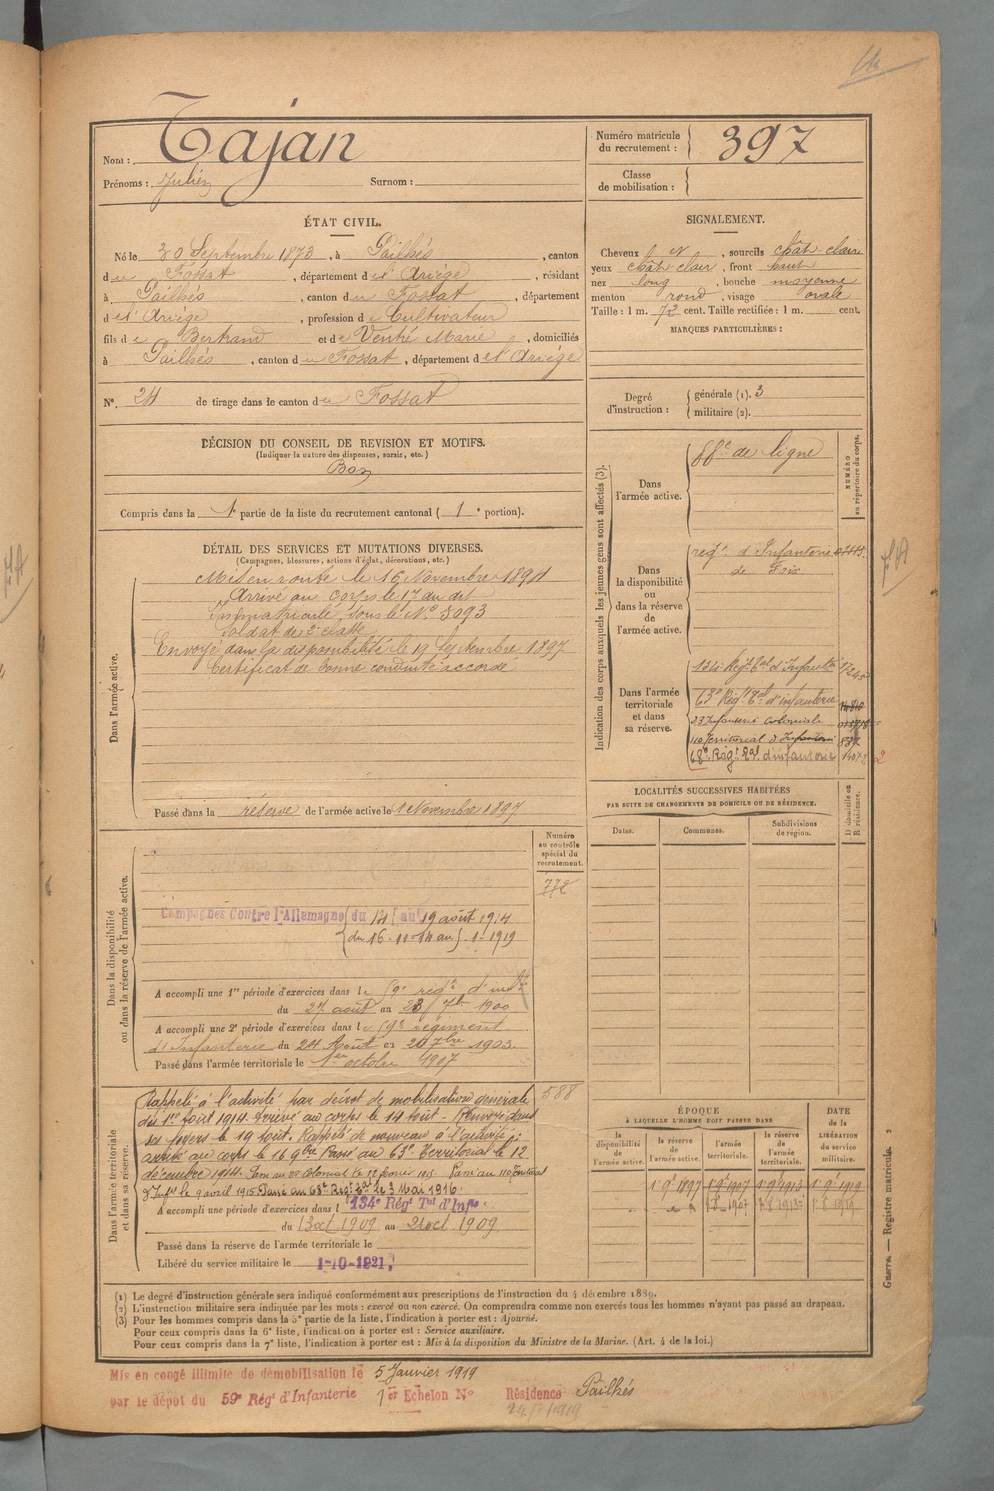 Nom : Tajan
Prénoms : Julien Surnom :
Numéro matricule du recrutement : 397
Classe de mobilisation :
ÉTAT CIVIL.
Né le 30 Septembre 1873, à Pailhés, canton
du Fossat, département de l'Ariège, résidant
à Pailhés, canton du Fossat, département
de l'Ariège, profession de Cultivateur
fils de Bertrand et de Ventré Marie, domiciliés
à Pailhés, canton du Fossat, département de l'Ariège
N° 24 de tirage dans le canton du Fossat
DÉCISION DU CONSEIL DE REVISION ET MOTIFS.
(Indiquer la nature des dispenses, sursis, etc.)
Bon
Compris dans la 1e partie de la liste du recrutement cantonal (1e portion).
SIGNALEMENT.
Cheveux , sourcils chât. clair
yeux chât. clair, front haut
nez long, bouche moyenne
menton rond, visage ovale
Taille : 1 m. 72 cent. Taille rectifiée : 1 m. cent.
MARQUES PARTICULIÈRES :
Degré d'instruction :
générale (1). 3
militaire (2).
DÉTAIL DES SERVICES ET MUTATIONS DIVERSES.
(Campagnes, blessures, actions d'éclat, décorations, etc.)
Dans l'armée active.
Mis en route le 16 Novembre 1894
Arrivé au corps le 17 au dit
Immatriculé sous le N° 3093
Soldat de 2e classe
Envoyé dans la disponibilité le 19 Septembre 1897
Certificat de bonne conduite accordé
Passé dans la réserve de l'armée active le 1 Novembre 1897
Indication des corps auxquels les jeunes gens sont affectés (3).
NUMÉRO au répertoire du corps.
Dans l'armée active.
88e de ligne
Dans la disponibilité ou dans la réserve de l'armée active.
régt. d'Infanterie
de Foix
Dans l'armée territoriale et dans sa réserve.
134e Régt Tal d'Infanterie
63e Régt Tal d'infanterie
23 Infanterie Coloniale
110 Territorial d'Infanterie 837
68e Régt Tal d'infanterie
LOCALITÉS SUCCESSIVES HABITÉES
PAR SUITE DE CHANGEMENTS DE DOMICILE OU DE RÉSIDENCE.
Dates. Communes. Subdivisions de région. D domicile ou R résidence.
Dans la disponibilité ou dans la réserve de l'armée active.
Numéro au contrôle spécial du recrutement.
772
Campagnes Contre l'Allemagne du 14 au 19 août 1914
du 16-11-14 au 5-1-1919
A accompli une 1re période d'exercices dans le 59e régt d'infie
du 27 août au 23 7bre 1900
A accompli une 2e période d'exercices dans le 59e régiment
d'Infanterie du 24 Août au 20 7bre 1903.
Passé dans l'armée territoriale le 1er octobre 1907
Dans l'armée territoriale et dans sa réserve.
588
Rappelé à l'activité par décret de mobilisation générale
du 1er Août 1914. Arrivé au corps le 14 août. Renvoyé dans
ses foyers le 19 août. Rappelé de nouveau à l'activité :
arrivé au corps le 16 9bre Passé au 63e Territorial le 12
décembre 1914. Passé au 23 Colonial le 12 février 1915. Passé au 110 Territorial
d'Infie le 9 avril 1915. Passé au 68e Régt Tal le 3 Mai 1916.
A accompli une période d'exercices dans l 134e Régt Tal d'Infie
du 13 oct 1909 au 21 oct 1909
Passé dans la réserve de l'armée territoriale le
Libéré du service militaire le 1-10-1921
ÉPOQUE
À LAQUELLE L'HOMME DOIT PASSER DANS
la disponibilité de l'armée active.
la réserve de l'armée active.
l'armée territoriale.
la réserve de l'armée territoriale.
DATE de la LIBÉRATION du service militaire.
(1) Le degré d'instruction générale sera indiqué conformément aux prescriptions de l'instruction du 4 décembre 1889.
(2) L'instruction militaire sera indiquée par les mots : exercé ou non exercé. On comprendra comme non exercés tous les hommes n'ayant pas passé au drapeau.
(3) Pour les hommes compris dans la 5e partie de la liste, l'indication à porter est : Ajourné.
Pour ceux compris dans la 6e liste, l'indication à porter est : Service auxiliaire.
Pour ceux compris dans la 7e liste, l'indication à porter est : Mis à la disposition du Ministre de la Marine. (Art. 4 de la loi.)
Guerre — Registre matricule.
Mis en congé illimité de démobilisation le 5 Janvier 1919
par le dépôt du 59e Régt d'Infanterie 1er Echelon N° Résidence Pailhés